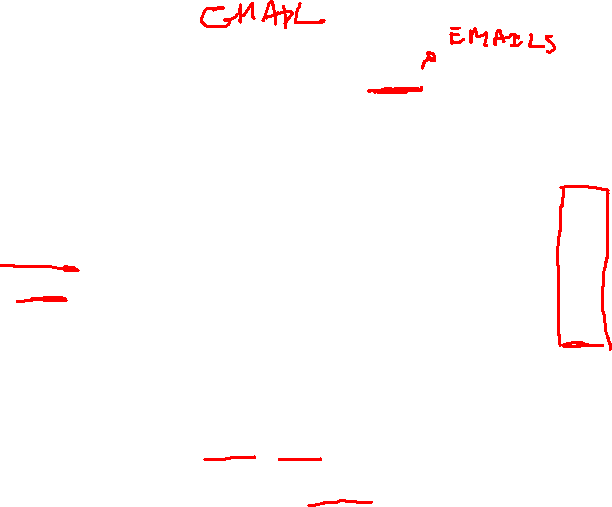 GMAIL
EMAILS